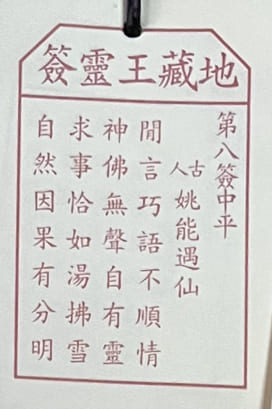 地藏王靈簽
第八簽中平
古人 姚能遇仙
閒言巧語不順情
神佛無聲自有靈
求事恰如湯拂雪
自然因果有分明